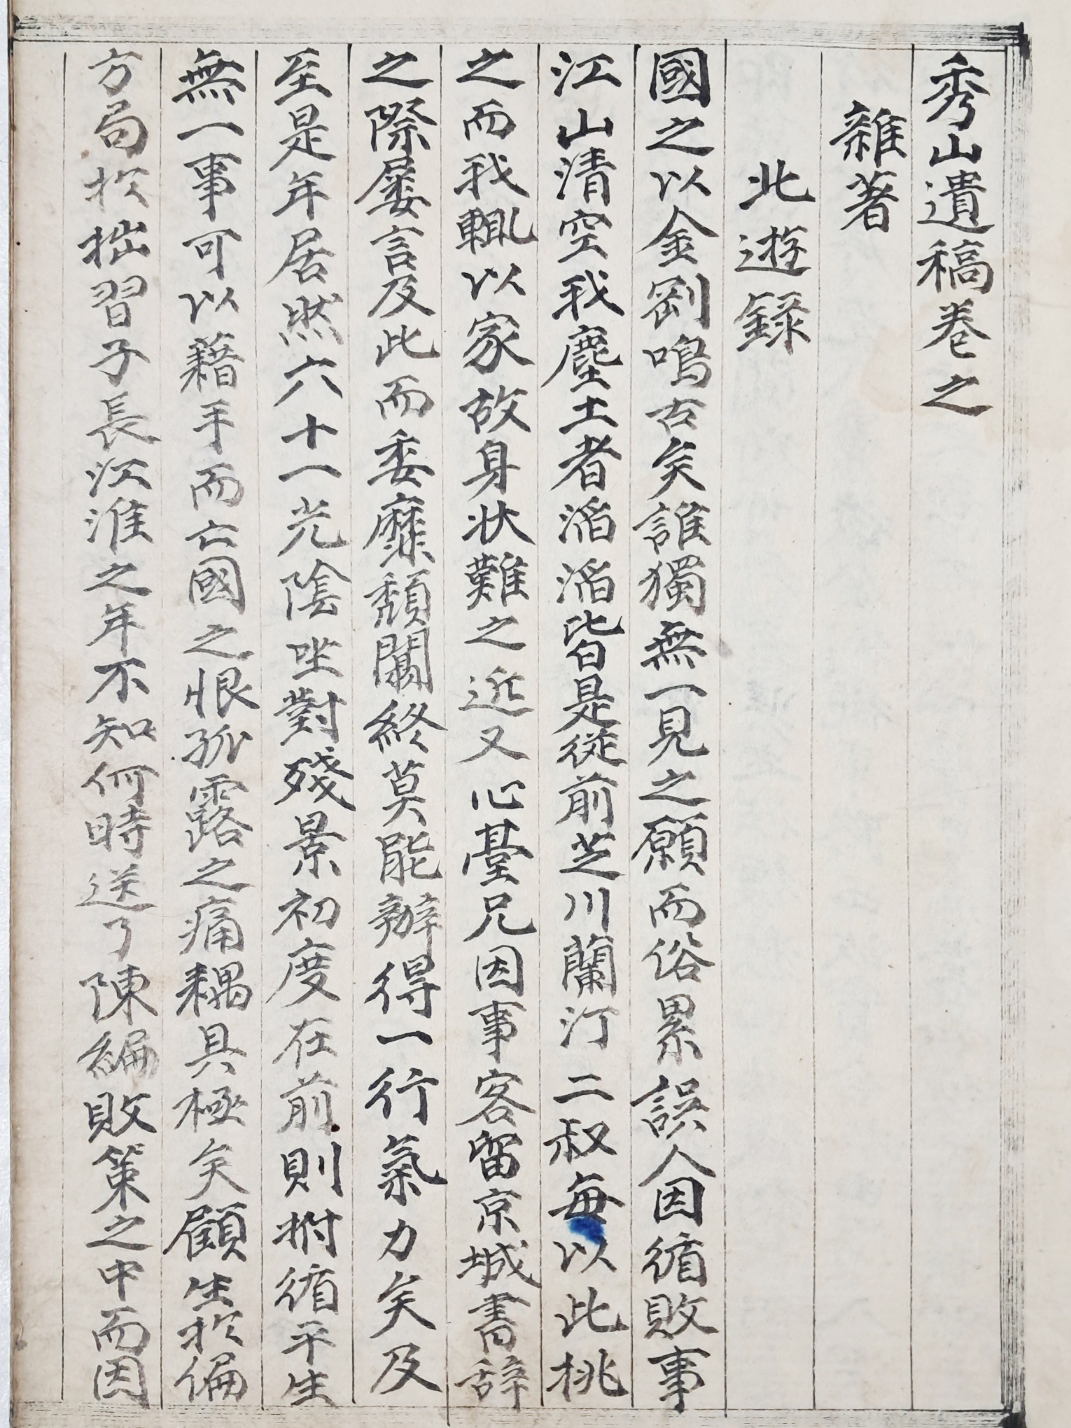 秀山遺稿卷之
雜著
北遊録
國之以金剛鳴古矣誰獨無一見之願而俗累誤人因循敗事
江山清空我塵土者滔滔皆是從前芝川蘭汀二叔每以此挑
之而我輒以家故身状難之近又心臺兄因事客留京城書辞
之際屡言及此而委靡頹闒終莫能辦得一行氣力矣及
至是年居然六十一光陰坐對殘景初度在前則拊循平生
無一事可以藉手而亡國之恨孤露之痛耦具極矣顧生於偏
方局於拙習子長江淮之年不知何時送了陳編敗策之中而因